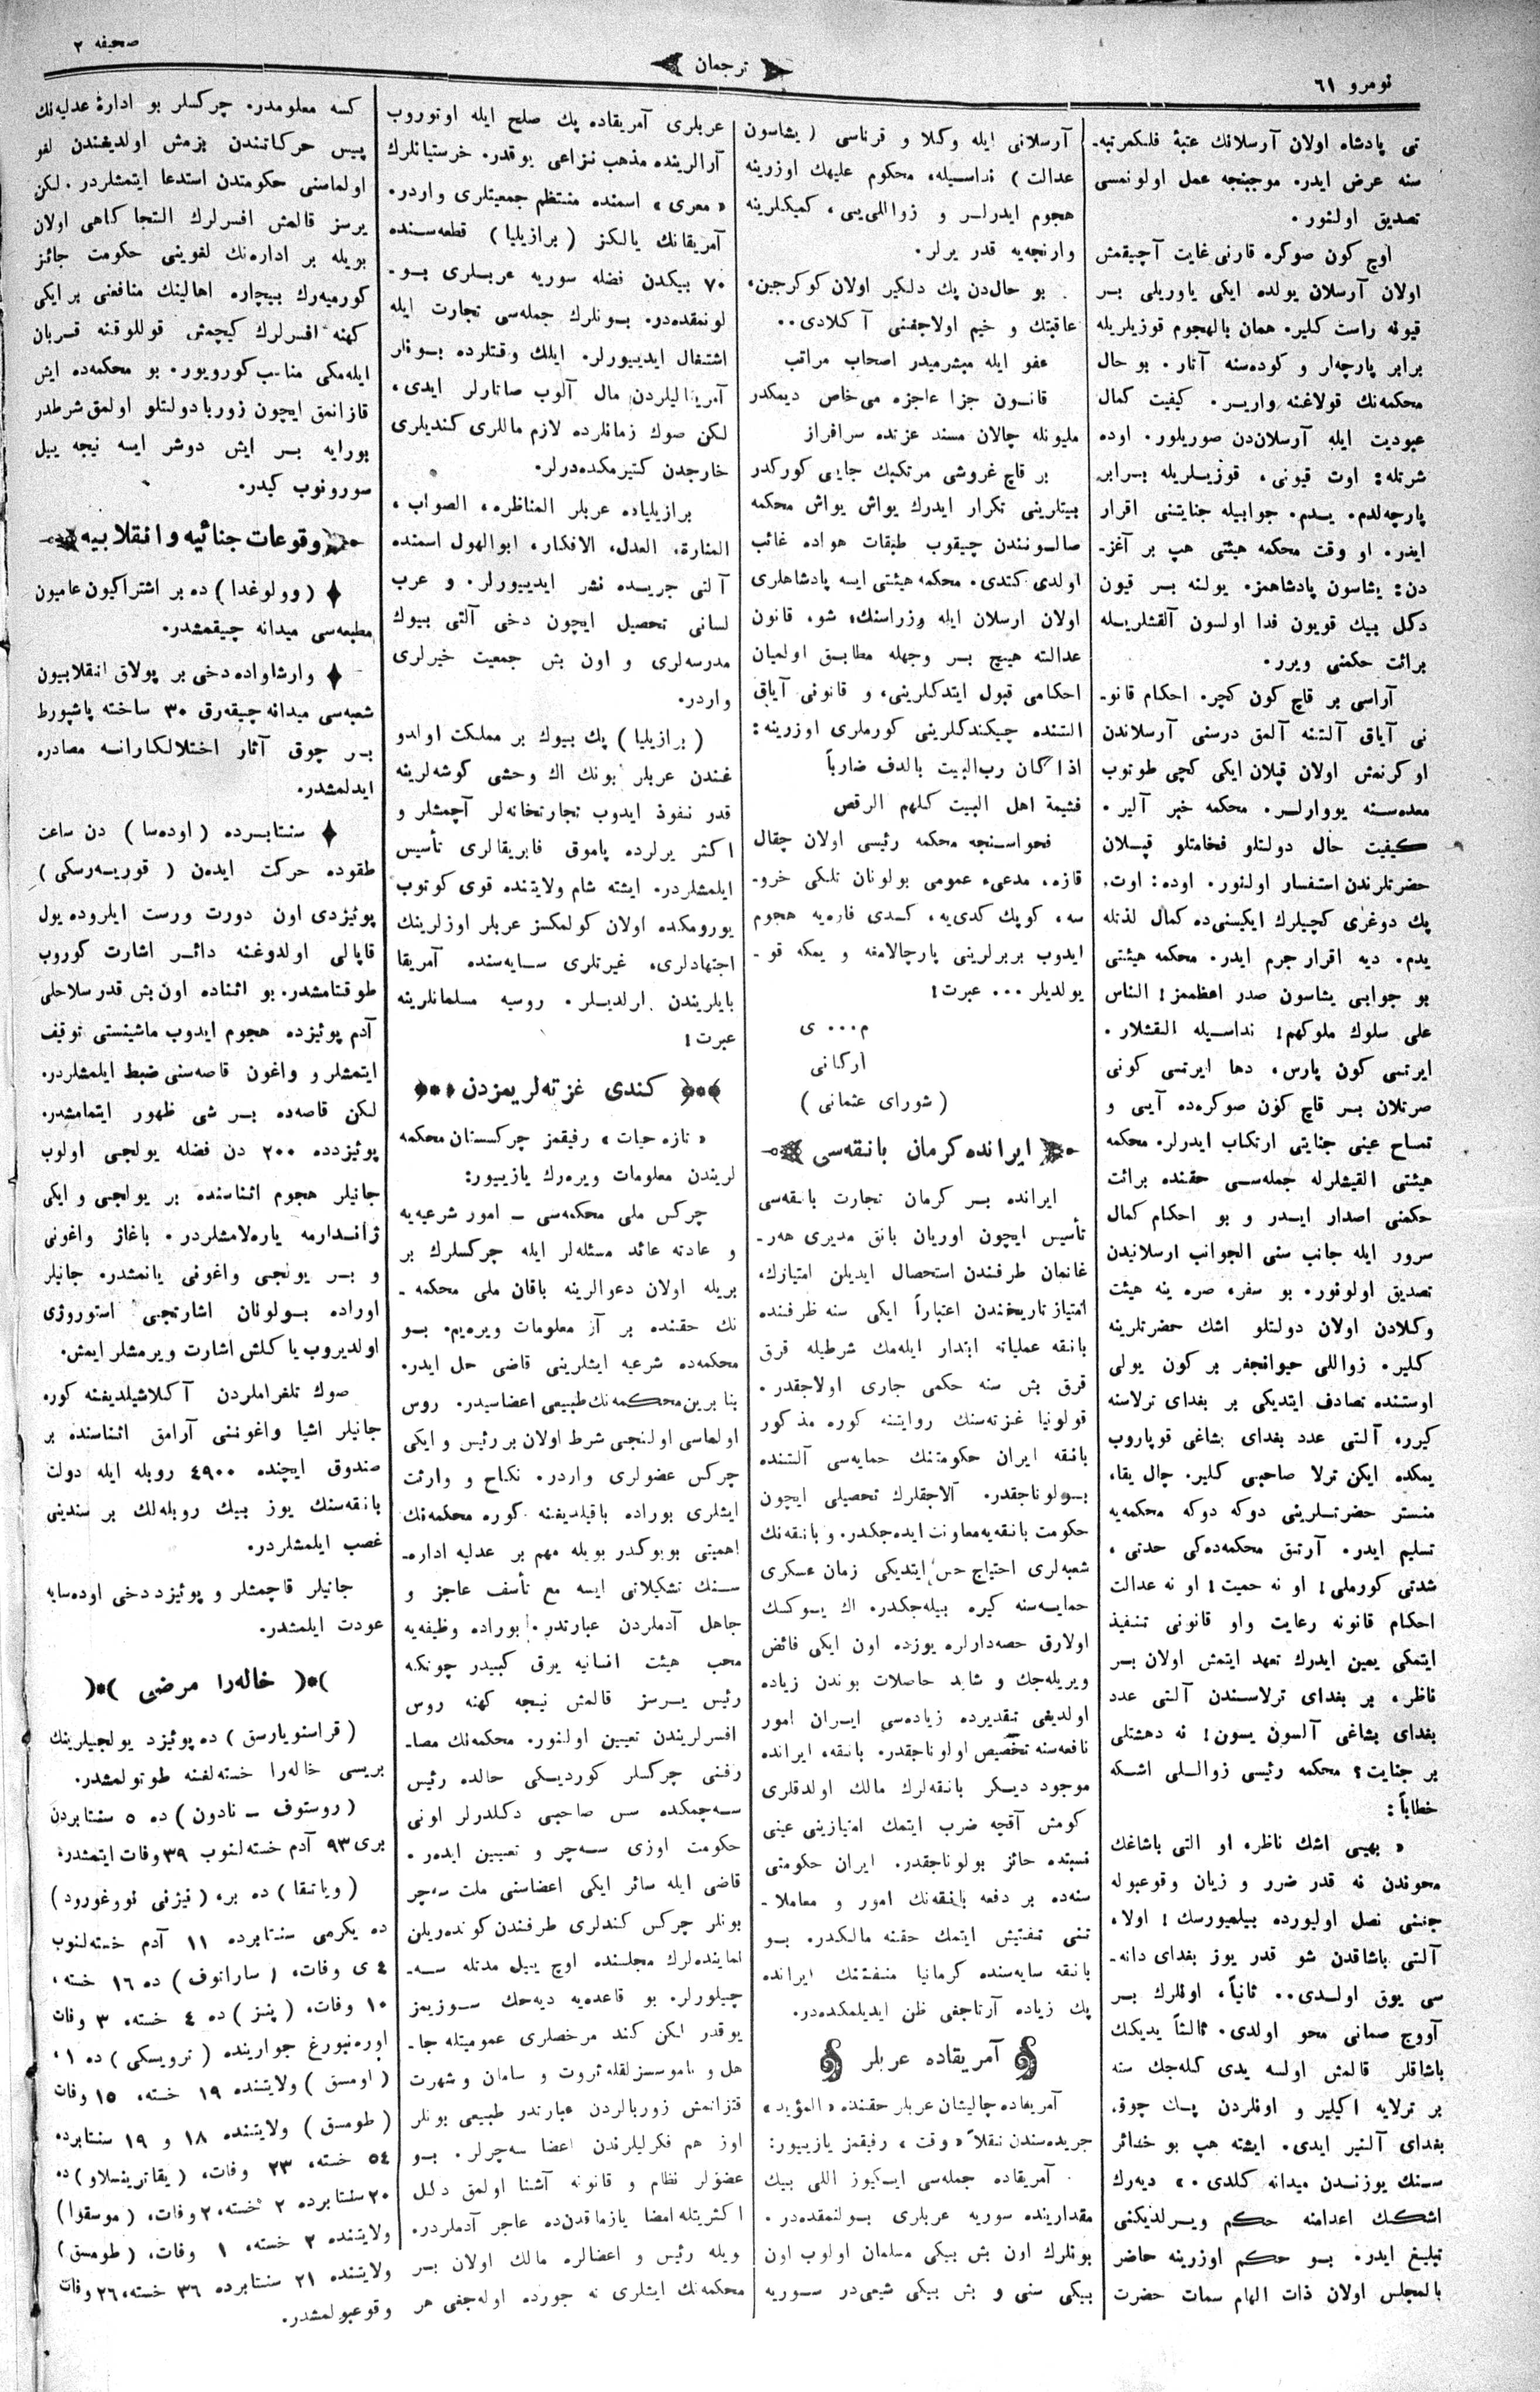 نومرو ٦١
ترجمان
صحیفه ٢
تی پادشاه اولان آرسلانك عتبهٔ فلكمرتبه-
سنه عرض ایدر. موجبنجه عمل اولونمسی
تصدیق اولنور.
اوچ كون صوكره قارنی غایت آچیقمش
اولان آرسلان یولده ایكی یاوریلی بر
قیونه راست كلیر. همان بالهجوم قوزیلریله
برابر پارچه‌لر و كوده‌سنه آتار. بو حال
محكمه‌نك قولاغنه واریر. كیفیت كمال
عبودیت ایله آرسلان‌دن صوریلور. اوده
شرتله: اوت قیونی، قوزیلریله برابر
پارچه‌لدم. یدم. جوابیله جنایتنی اقرار
ایدر. او وقت محكمه هیئتی هپ بر آغز-
دن: یشاسون پادشاهمز. یولنه بر قیون
دكل بیك قویون فدا اولسون آلقشلریله
برائت حكمنی ویرر.
آراسی بر قاچ كون كچر. احكام قانو-
نی آیاق آلتنه آلمق درسنی آرسلاندن
اوكرنمش اولان قپلان ایكی كچی طوتوب
معده‌سنه یووارلر. محكمه خبر آلیر.
كیفیت حال دولتلو فخامتلو قپلان
حضرتلرندن استفسار اولنور. اوده: اوت.
پك دوغری كچیلرك ایكیسنی‌ده كمال لذتله
یدم. دیه اقرار جرم ایدر. محكمه هیئتی
بو جوابی یشاسون صدر اعظممز! الناس
علی سلوك ملوكهم! نداسیله القشلار.
ایرتسی كون پارس، دها ایرتسی كونی
صرتلان بر قاچ كون صوكره‌ده آیی و
تمساح عینی جنایتی ارتكاب ایدرلر. محكمه
هیئتی القیشلرله جمله‌سی حقنده برائت
حكمنی اصدار ایدر و بو احكام كمال
سرور ایله جانب سنی الجوانب ارسلانیدن
تصدیق اولونور. بو سفره صره ینه هیئت
وكلادن اولان دولتلو اشك حضرتلرینه
كلیر. زواللی حیوانجغز بر كون یولی
اوستنده تصادف ایتدیكی بر بغدای ترلاسنه
كیرر. آلتی عدد بغدای بشاغی قوپاروب
یمكده ایكن ترلا صاحبی كلیر. چال یقا،
منستر حضرتلرینی دوكه دوكه محكمه‌یه
تسلیم ایدر. آرتق محكمه‌ده‌كی حدتی،
شدتی كورملی! او نه حمیت! او نه عدالت
احكام قانونه رعایت واو قانونی تنفیذ
ایتمكی یمین ایدرك تعهد ایتمش اولان بر
ناظر، بر بغدای ترلاسندن آلتی عدد
بغدای بشاغی آلسون یسون! نه دهشتلی
بر جنایت؟ محكمه رئیسی زواللی اشكه
خطاباً:
« بهیی اشك ناظر، او التی باشاغك
محوندن نه قدر ضرر و زیان وقوعبوله
جغنی نصل اولیورده بیلمیورسك! اولا،
آلتی باشاقدن شو قدر یوز بغدای دانه-
سی یوق اولدی.. ثانیاً، اونلرك بر
آووج صمانی محو اولدی. ثالثاً یدیكك
باشاقلر قالمش اولسه یدی كله‌جك سنه
بر ترلایه اكیلیر و اونلردن پك چوق
بغدای آلنیر ایدی. ایشته هپ بو خسائر
سنك یوزندن میدانه كلدی.» دیه‌رك
اشكك اعدامنه حكم ویرلدیكنی
تبلیغ ایدر. بو حكم اوزرینه حاضر
بالمجلس اولان ذات الهام سمات حضرت
آرسلانی ایله وكلا و قرناسی (یشاسون
عدالت) نداسیله، محكوم علیهك اوزرینه
هجوم ایدرلر و زواللی‌یی، كمیكلرینه
وارنجه‌یه قدر یرلر.
بو حال‌دن پك دلكیر اولان كوكرجین،
عاقبتك و خیم اولاجغنی آكلادی..
عفو ایله مبشرمیدر اصحاب مراتب
قانون جزا عاجزه می‌خاص دیمكدر
ملیونله چالان مسند عزنده سرافراز
بر قاچ غروشی مرتكبك جایی كوركدر
بیتلرینی تكرار ایدرك یواش یواش محكمه
صالونندن چیقوب طبقات هواده غائب
اولدی كتدی. محكمه هیئتی ایسه پادشاهلری
اولان ارسلان ایله وزراسنك، شو، قانون
عدالته هیچ بر وجهله مطابق اولمیان
احكامی قبول ایتدكلرینی، و قانونی آیاق
التنده چیكندكلرینی كورملری اوزرینه:
اذا كان رب‌البیت بالدف ضارباً
فشیمة اهل البیت كلهم الرقص
فحواسنجه محكمه رئیسی اولان چقال
قازه، مدعیء عمومی بولونان تلكی خرو-
سه، كوپك كدی‌یه، كدی فاره‌یه هجوم
ایدوب بربرلرینی پارچالامغه و یمكه قو-
یولدیلر... عبرت!
م... ی
ارکانی
(شورای عثمانی)
ایرانده كرمان بانقه‌سی
ایرانده بر كرمان تجارت بانقه‌سی
تأسیس ایچون اوریان بانق مدیری هه‌ر-
غانمان طرفندن استحصال ایدیلن امتیازك،
امتیاز تاریخندن اعتباراً ایكی سنه ظرفنده
بانقه عملیاته ابتدار ایله‌مك شرطیله قرق
قرق بش سنه حكمی جاری اولاجقدر.
قولونیا غزته‌سنك روایتنه كوره مذكور
بانقه ایران حكومتنك حمایه‌سی آلتنده
بولوناجقدر. آلاجقلرك تحصیلی ایچون
حكومت بانقه‌یه معاونت ایده‌جكدر. و بانقه‌نك
شعبه‌لری احتیاج حس ایتدیكی زمان عسكری
حمایه‌سنه كیره بیله‌جكدر. اك یوكسك
اولارق حصه‌دارلره یوزده اون ایكی فائض
ویریله‌جك و شاید حاصلات بوندن زیاده
اولدیغی تقدیرده زیاده‌سی ایران امور
نافعه‌سنه تخصیص اولوناجقدر. بانقه، ایرانده
موجود دیكر بانقه‌لرك مالك اولدقلری
كومش آقچه ضرب ایتمك امتیازینی عینی
نسبتده حائز بولوناجقدر. ایران حكومتی
سنه‌ده بر دفعه بانقه‌نك امور و معاملا-
تنی تفتیش ایتمك حقنه مالكدر. بو
بانقه سایه‌سنده كرمانیا منفعتنك ایرانده
پك زیاده آرتاجغی ظن ایدیلمكده‌در.
آمریقاده عربلر
آمریقاده چالیشان عربلر حقنده «المؤید»
جریده‌سندن نقلاً «وقت» رفیقمز یازییور:
آمریقاده جمله‌سی ایكیوز اللی بیك
مقدارینده سوریه عربلری بولنمقده‌در.
بونلرك اون بش بیكی مسلمان اولوب اون
بیكی سنی و بش بیكی شیعی‌در سوریه
عربلری آمریقاده پك صلح ایله اوتوروب
آرالرینده مذهب نزاعی یوقدر. خرستیانلرك
«معری» اسمنده منتظم جمعیتلری واردر.
آمریقانك یالكز (برازیلیا) قطعه‌سنده
٧٠ بیكدن فضله سوریه عربلری بو-
لونمقده‌در. بونلرك جمله‌سی تجارت ایله
اشتغال ایدییورلر. ایلك وقتلرده بونلر
آمریقالیلردن مال آلوب صاتارلر ایدی،
لكن صوك زمانلرده لازم ماللری كندیلری
خارجدن كتیرمكده‌درلر.
برازیلیاده عربلر المناظره، الصواب،
المنارة، العدل، الافكار، ابوالهول اسمنده
آلتی جریده نشر ایدییورلر. و عرب
لسانی تحصیل ایچون دخی آلتی بیوك
مدرسه‌لری و اون بش جمعیت خیرلری
واردر.
(برازیلیا) پك بیوك بر مملكت اولدو
غندن عربلر بونك اك وحشی كوشه‌لرینه
قدر نفوذ ایدوب تجارتخانه‌لر آچمشلر و
اكثر یرلرده پاموق فابریقالری تأسیس
ایلمشلردر. ایشته شام ولایتنده قوی كوتوب
یورومكده اولان كولمكسز عربلر اوزلرینك
اجتهادلری، غیرتلری سایه‌سنده آمریقا
بایلریندن ارلدیلر. روسیه مسلمانلرینه
عبرت!
كندی غزته‌لریمزدن
«تازه حیات» رفیقمز چركسستان محكمه
لریندن معلومات ویره‌رك یازییور:
چركس ملی محكمه‌سی - امور شرعیه‌یه
و عادته عائد مسئله‌لر ایله چركسلرك بر
بریله اولان دعوالرینه باقان ملی محكمه-
نك حقنده بر آز معلومات ویره‌یم. بو
محكمه‌ده شرعیه ایشلرینی قاضی حل ایدر.
بنا برین محكمه‌نك طبیعی اعضاسیدر. روس
اولماسی اولنجی شرط اولان بر رئیس و ایكی
چركس عضولری واردر. نكاح و وارثت
ایشلری بوراده باقیلدیغنه كوره محكمه‌نك
اهمیتی بویوكدر بویله مهم بر عدلیه اداره-
سنك تشكیلاتی ایسه مع تأسف عاجز و
جاهل آدملردن عبارتدر. بوراده وظیفه‌یه
محب هیئت افسانیه یرق كبیدر چونكه
رئیس یرسز قالمش نیجه كهنه روس
افسرلریندن تعیین اولنور. محكمه‌نك مصا-
رفنی چركسلر كوردیكی حالده رئیس
سه‌چمكده سس صاحبی دكلدرلر اونی
حكومت اوزی سه‌چر و تعیین ایدر.
قاضی ایله سائر ایكی اعضاسنی ملت سه‌چر
بونلر چركس كندلری طرفندن كونده‌ریلن
نماینده‌لرك مجلسنده اوچ ییل مدتله سه-
چیلورلر. بو قاعده‌یه دیه‌جك سوزیمز
یوقدر لكن كند مرخصلری عمومیتله جا-
هل و ناموسسزلقله ثروت و سامان و شهرت
قزانمش زوربالردن عبارتدر طبیعی بونلر
اوز هم فكرلیلرندن اعضا سه‌چرلر. بو
عضولر نظام و قانونه آشنا اولمق دكل
اكثریتله امضا یازماقدن‌ده عاجز آدملردر.
بویله رئیس و اعضالره مالك اولان بر
محكمه‌نك ایشلری نه جورده اوله‌جغی هر
كسه معلومدر. چركسلر بو ادارهٔ عدلیه‌نك
پیس حركاتندن بزمش اولدیغندن لغو
اولماسنی حكومتدن استدعا ایتمشلردر. لكن
یرسز قالمش افسرلرك التجا كاهی اولان
بویله بر اداره‌نك لغوینی حكومت جائز
كورمیه‌رك بیچاره اهالینك منافعنی بر ایكی
كهنه افسرلرك كیچمش قوللوقنه قربان
ایله‌مكی مناسب كورویور. بو محكمه‌ده ایش
قازانمق ایچون زوربا دولتلو اولمق شرطدر
بورایه بر ایش دوشر ایسه نیجه ییل
سورونوب كیدر.
وقوعات جنائیه و انقلابیه
(وولوغدا) ده بر اشتراكیون عامیون
مطبعه‌سی میدانه چیقمشدر.
وارشاواده دخی بر پولاق انقلابیون
شعبه‌سی میدانه چیقه‌رق ٣٠ ساخته پاشپورط
بر چوق آثار اختلالكارانه مصادره
ایدلمشدر.
سنتابرده (اوده‌سا) دن ساعت
طقوده حركت ایدن (قوریه‌رسكی)
پوئیزدی اون دورت ورست ایلروده یول
قاپالی اولدوغنه دائر اشارت كوروب
طوقتامشدر. بو اثناده اون بش قدر سلاحلی
آدم پوئیزده هجوم ایدوب ماشینستی توقیف
ایتمشلر و واغون قاصه‌سنی ضبط ایلمشلردر.
لكن قاصه‌ده بر شی ظهور ایتمامشدر.
پوئیزدده ٢٠٠ دن فضله یولجی اولوب
جانیلر هجوم اثناسنده بر یولجی و ایكی
ژاندارمه یاره‌لامشلردر. باغاژ واغونی
و بر یولجی واغونی یانمشدر. جانیلر
اوراده بولونان اشارتجی استوروژی
اولدیروب یاكلش اشارت ویرمشلر ایمش.
صوك تلغراملردن آكلاشیلدیغنه كوره
جانیلر اشیا واغوننی آرامق اثناسنده بر
صندوق ایچنده ٤٩٠٠ روبله ایله دولت
بانقه‌سنك یوز بیك روبله‌لك بر سندینی
غصب ایلمشلردر.
جانیلر قاچمشلر و پوئیزد دخی اوده‌سایه
عودت ایلمشدر.
خاله‌را مرضی
(قراسنویارسق) ده پوئیزد یولجیلرینك
بریسی خاله‌را خسته‌لغنه طوتولمشدر.
(روستوف - نادون) ده ٥ سنتابردن
بری ٩٣ آدم خسته‌لنوب ٣٩ وفات ایتمشدر.
(ویاتقا) ده بر، (نیزنی نووغورود)
ده یكرمی سنتابرده ١١ آدم خسته‌لنوب
٤ی وفات، (ساراتوف) ده ١٦ خسته،
١٠ وفات، (پنز) ده ٤ خسته، ٣ وفات
اوره‌نبورغ جوارینده (ترویسكی) ده ١،
(اومسق) ولایتنده ١٩ خسته، ١٥ وفات
(طومسق) ولایتنده ١٨ و ١٩ سنتابرده
٥٤ خسته، ٢٣ وفات، (یقاترینسلاو) ده
٢٠ سنتابرده ٢ خسته، ٢ وفات، (موسقوا)
ولایتنده ٢ خسته، ١ وفات، (طومسق)
ولایتنده ٢١ سنتابرده ٣٦ خسته، ٢٦ وفات
وقوعبولمشدر.